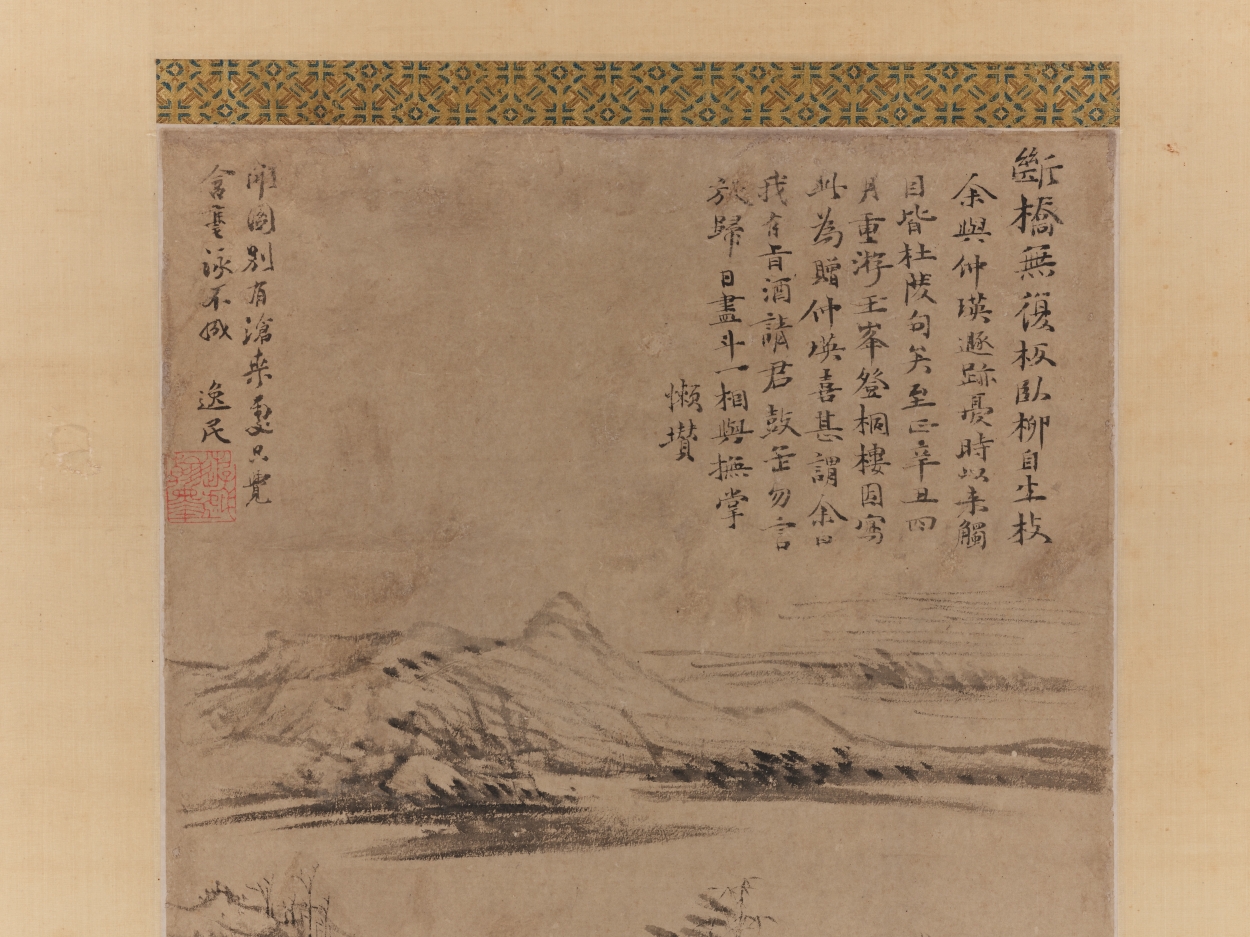 斷橋無復板臥柳自生枝
余與仲瑛遯跡憂時以來觸
目皆杜陵句矣至正辛丑四
月重游玉峯登桐樓因寫
此為贈仲瑛喜甚謂余曰
我有旨酒請君鼓缶勿言
放歸日盡斗一相與撫掌
懶瓚
開圖別有滄桑處只覺
含豪泳不成
逸民